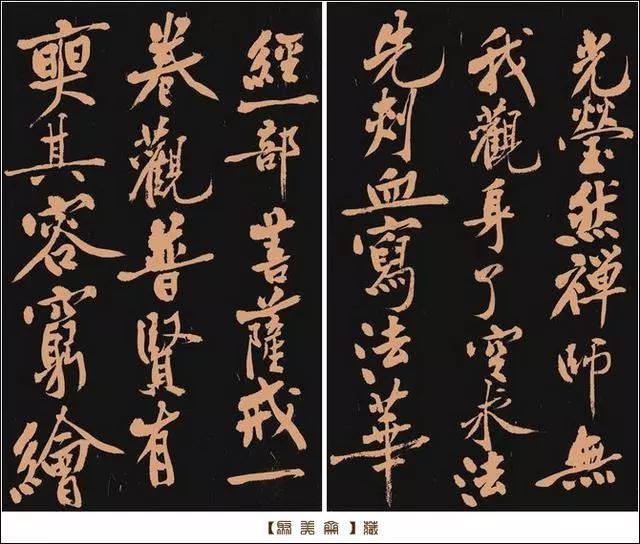 光瑩然禅師無
我觀身了空求法
先刺血寫法華
經一部菩薩戒一
卷觀普賢有
奭其容窮繪